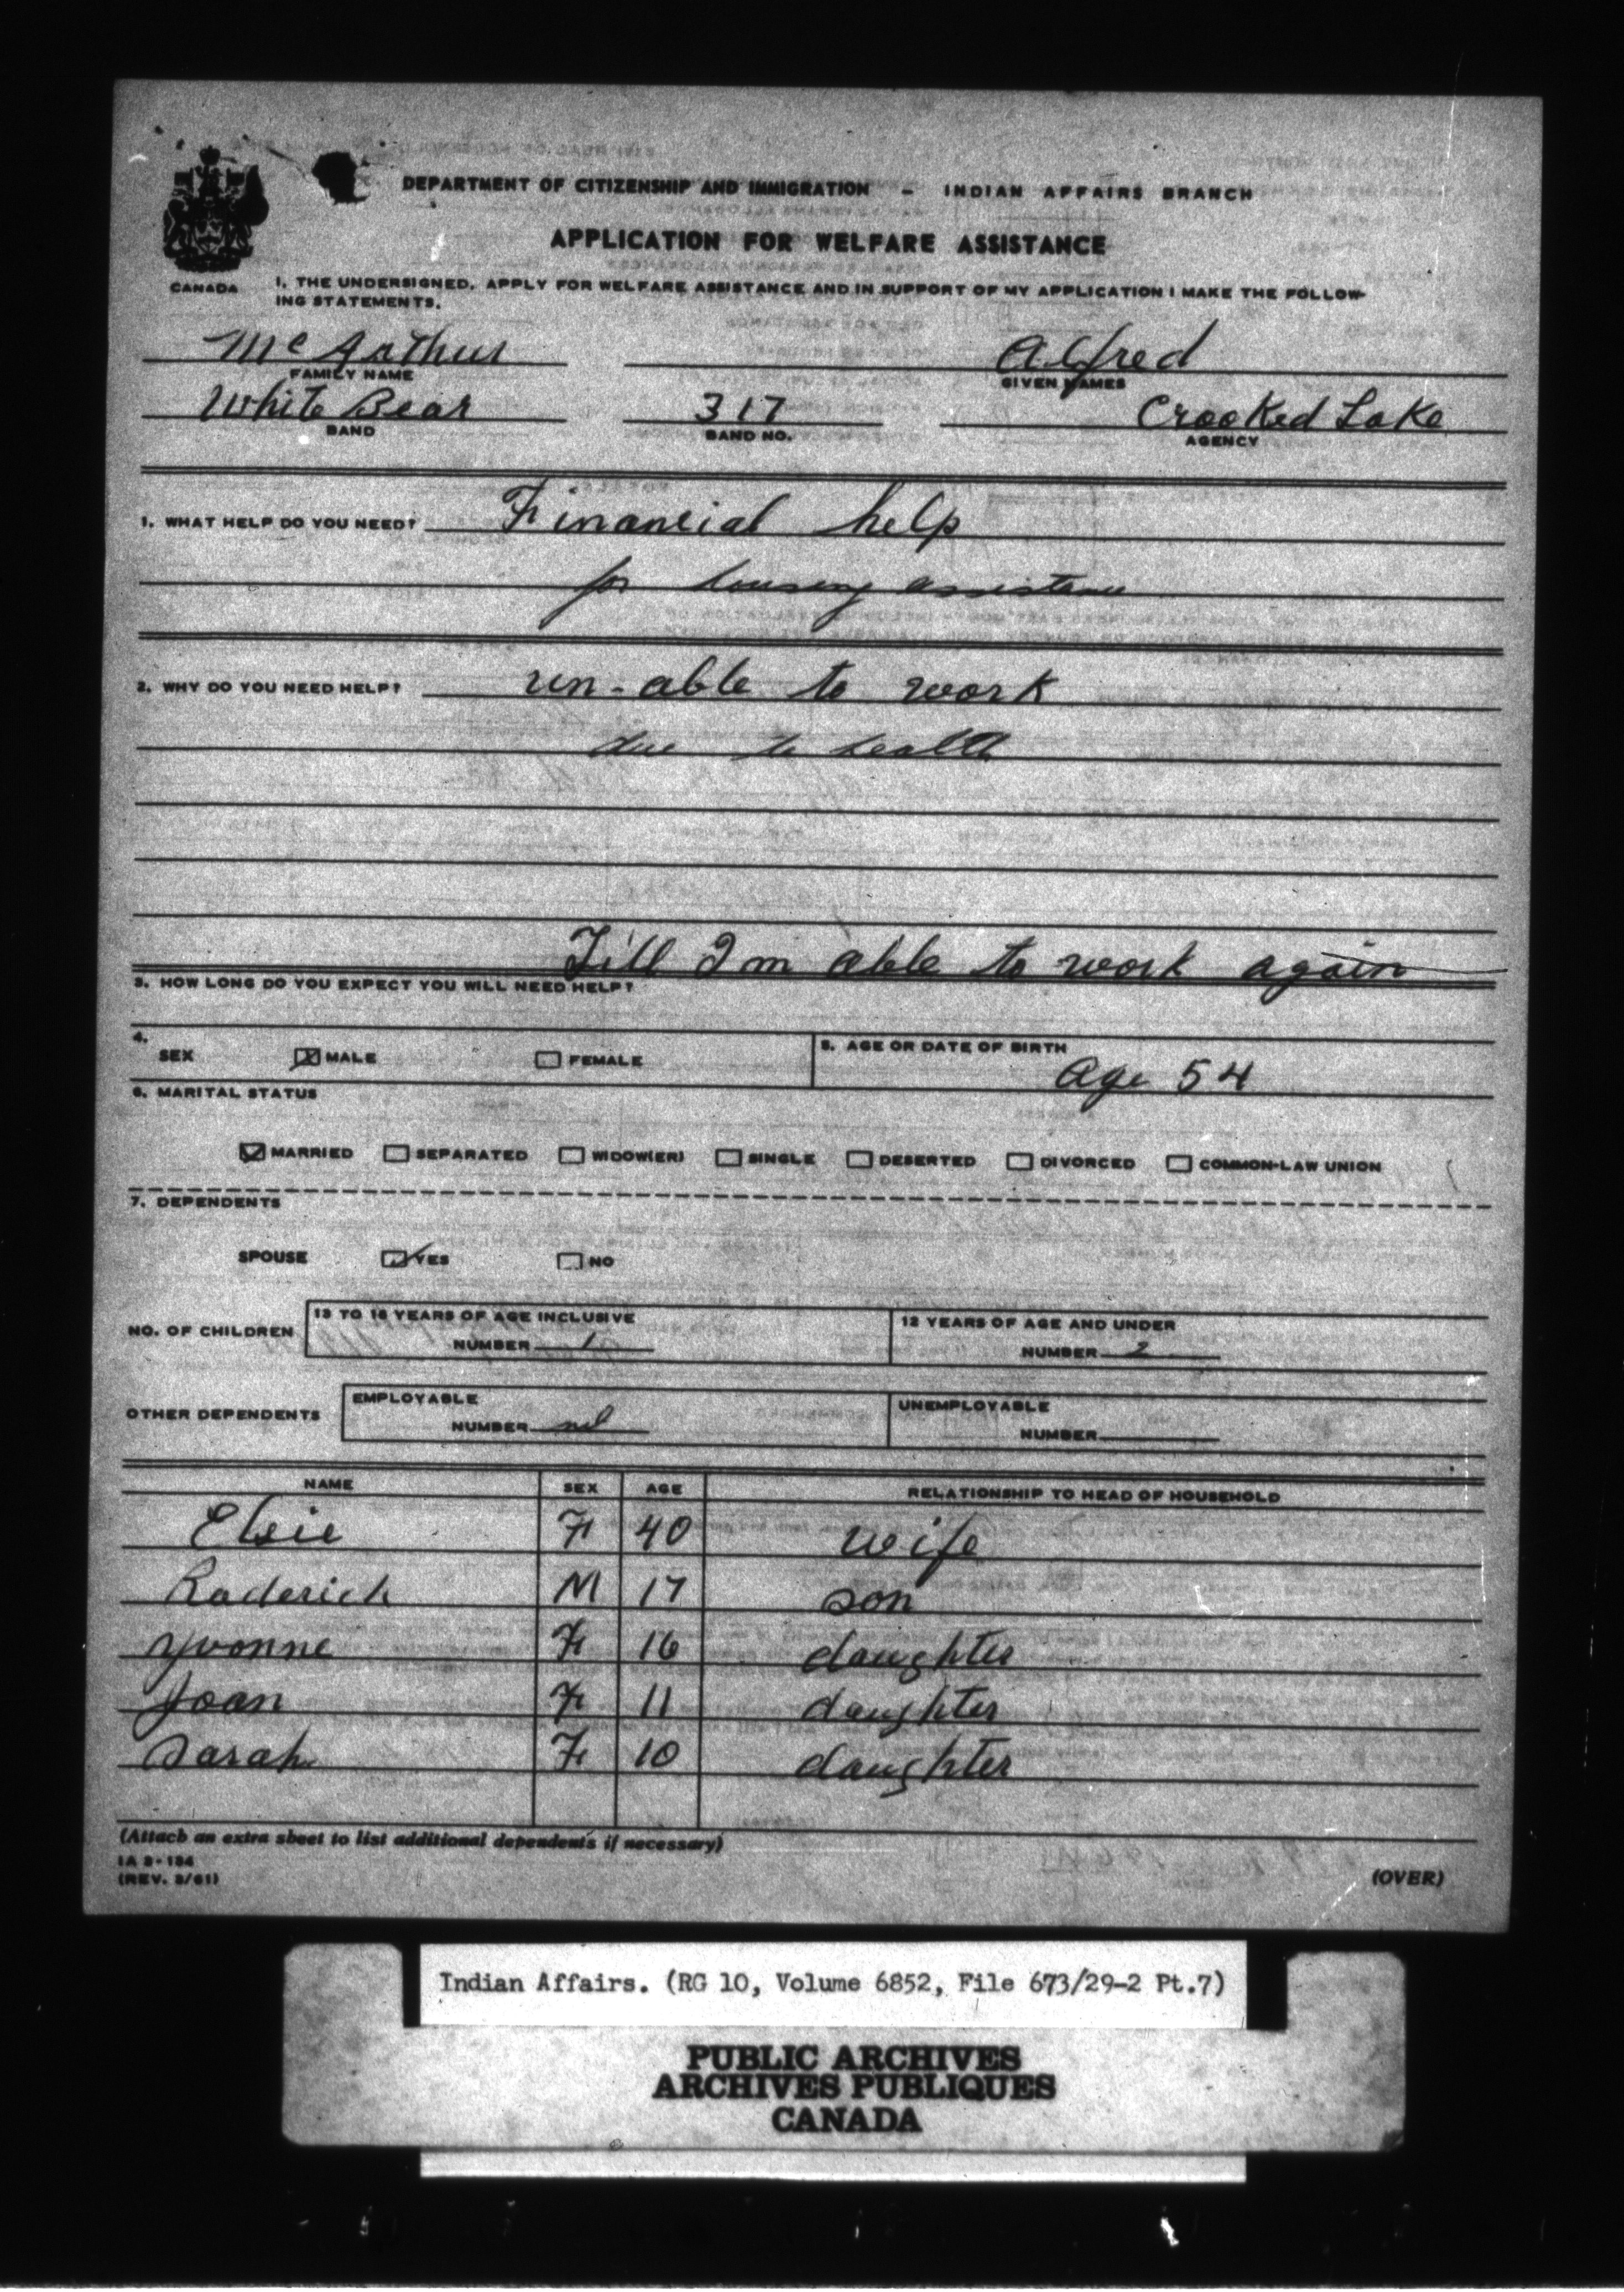 DEPARTMENT OF CITIZENSHIP AND IMMIGRATION – INDIAN AFFAIRS BRANCH
APPLICATION FOR WELFARE ASSISTANCE
CANADA
I, THE UNDERSIGNED, APPLY FOR WELFARE ASSISTANCE AND IN SUPPORT OF MY APPLICATION I MAKE THE FOLLOW-
ING STATEMENTS.
McArthur Alfred
FAMILY NAME GIVEN NAMES
White Bear 317 Crooked Lake
BAND BAND NO. AGENCY
1. WHAT HELP DO YOU NEED? Financial help
for housing assistance
2. WHY DO YOU NEED HELP? un-able to work
due to health
Till I'm able to work again
3. HOW LONG DO YOU EXPECT YOU WILL NEED HELP?
4. SEX MALE FEMALE
5. AGE OR DATE OF BIRTH
Age 54
6. MARITAL STATUS
MARRIED SEPARATED WIDOW(ER) SINGLE DESERTED DIVORCED COMMON-LAW UNION
7. DEPENDENTS
SPOUSE YES NO
NO. OF CHILDREN
13 TO 16 YEARS OF AGE INCLUSIVE
NUMBER 1
12 YEARS OF AGE AND UNDER
NUMBER 2
OTHER DEPENDENTS
EMPLOYABLE
NUMBER nil
UNEMPLOYABLE
NUMBER
NAME SEX AGE RELATIONSHIP TO HEAD OF HOUSEHOLD
Elsie F 40 wife
Roderick M 17 son
Yvonne F 16 daughter
Joan F 11 daughter
Sarah F 10 daughter
(Attach an extra sheet to list additional dependents if necessary)
IA 3-134
(REV. 3/61)
(OVER)
Indian Affairs. (RG 10, Volume 6852, File 673/29-2 Pt.7)
PUBLIC ARCHIVES
ARCHIVES PUBLIQUES
CANADA